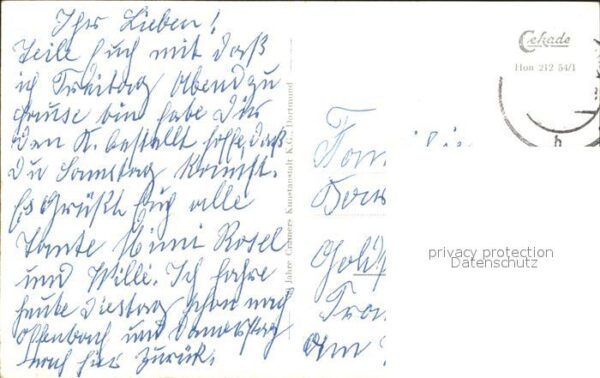 Ihr Lieben!
Teile Euch mit daß
ich Freitag Abend zu
Hause bin habe Dir
den K. bestellt hoffe, daß
Du Samstag kommst.
Es Grüßt Euch alle
Tante Mimi Rosel
und Willi. Ich fahre
heute Diestag schon nach
Offenbach und Donerstag
nach hier zurück.
Jahre Cramers Kunstanstalt K.G., Dortmund
Cekade
Hon 212 54/1
h
Fam
privacy protection
Datenschutz
am